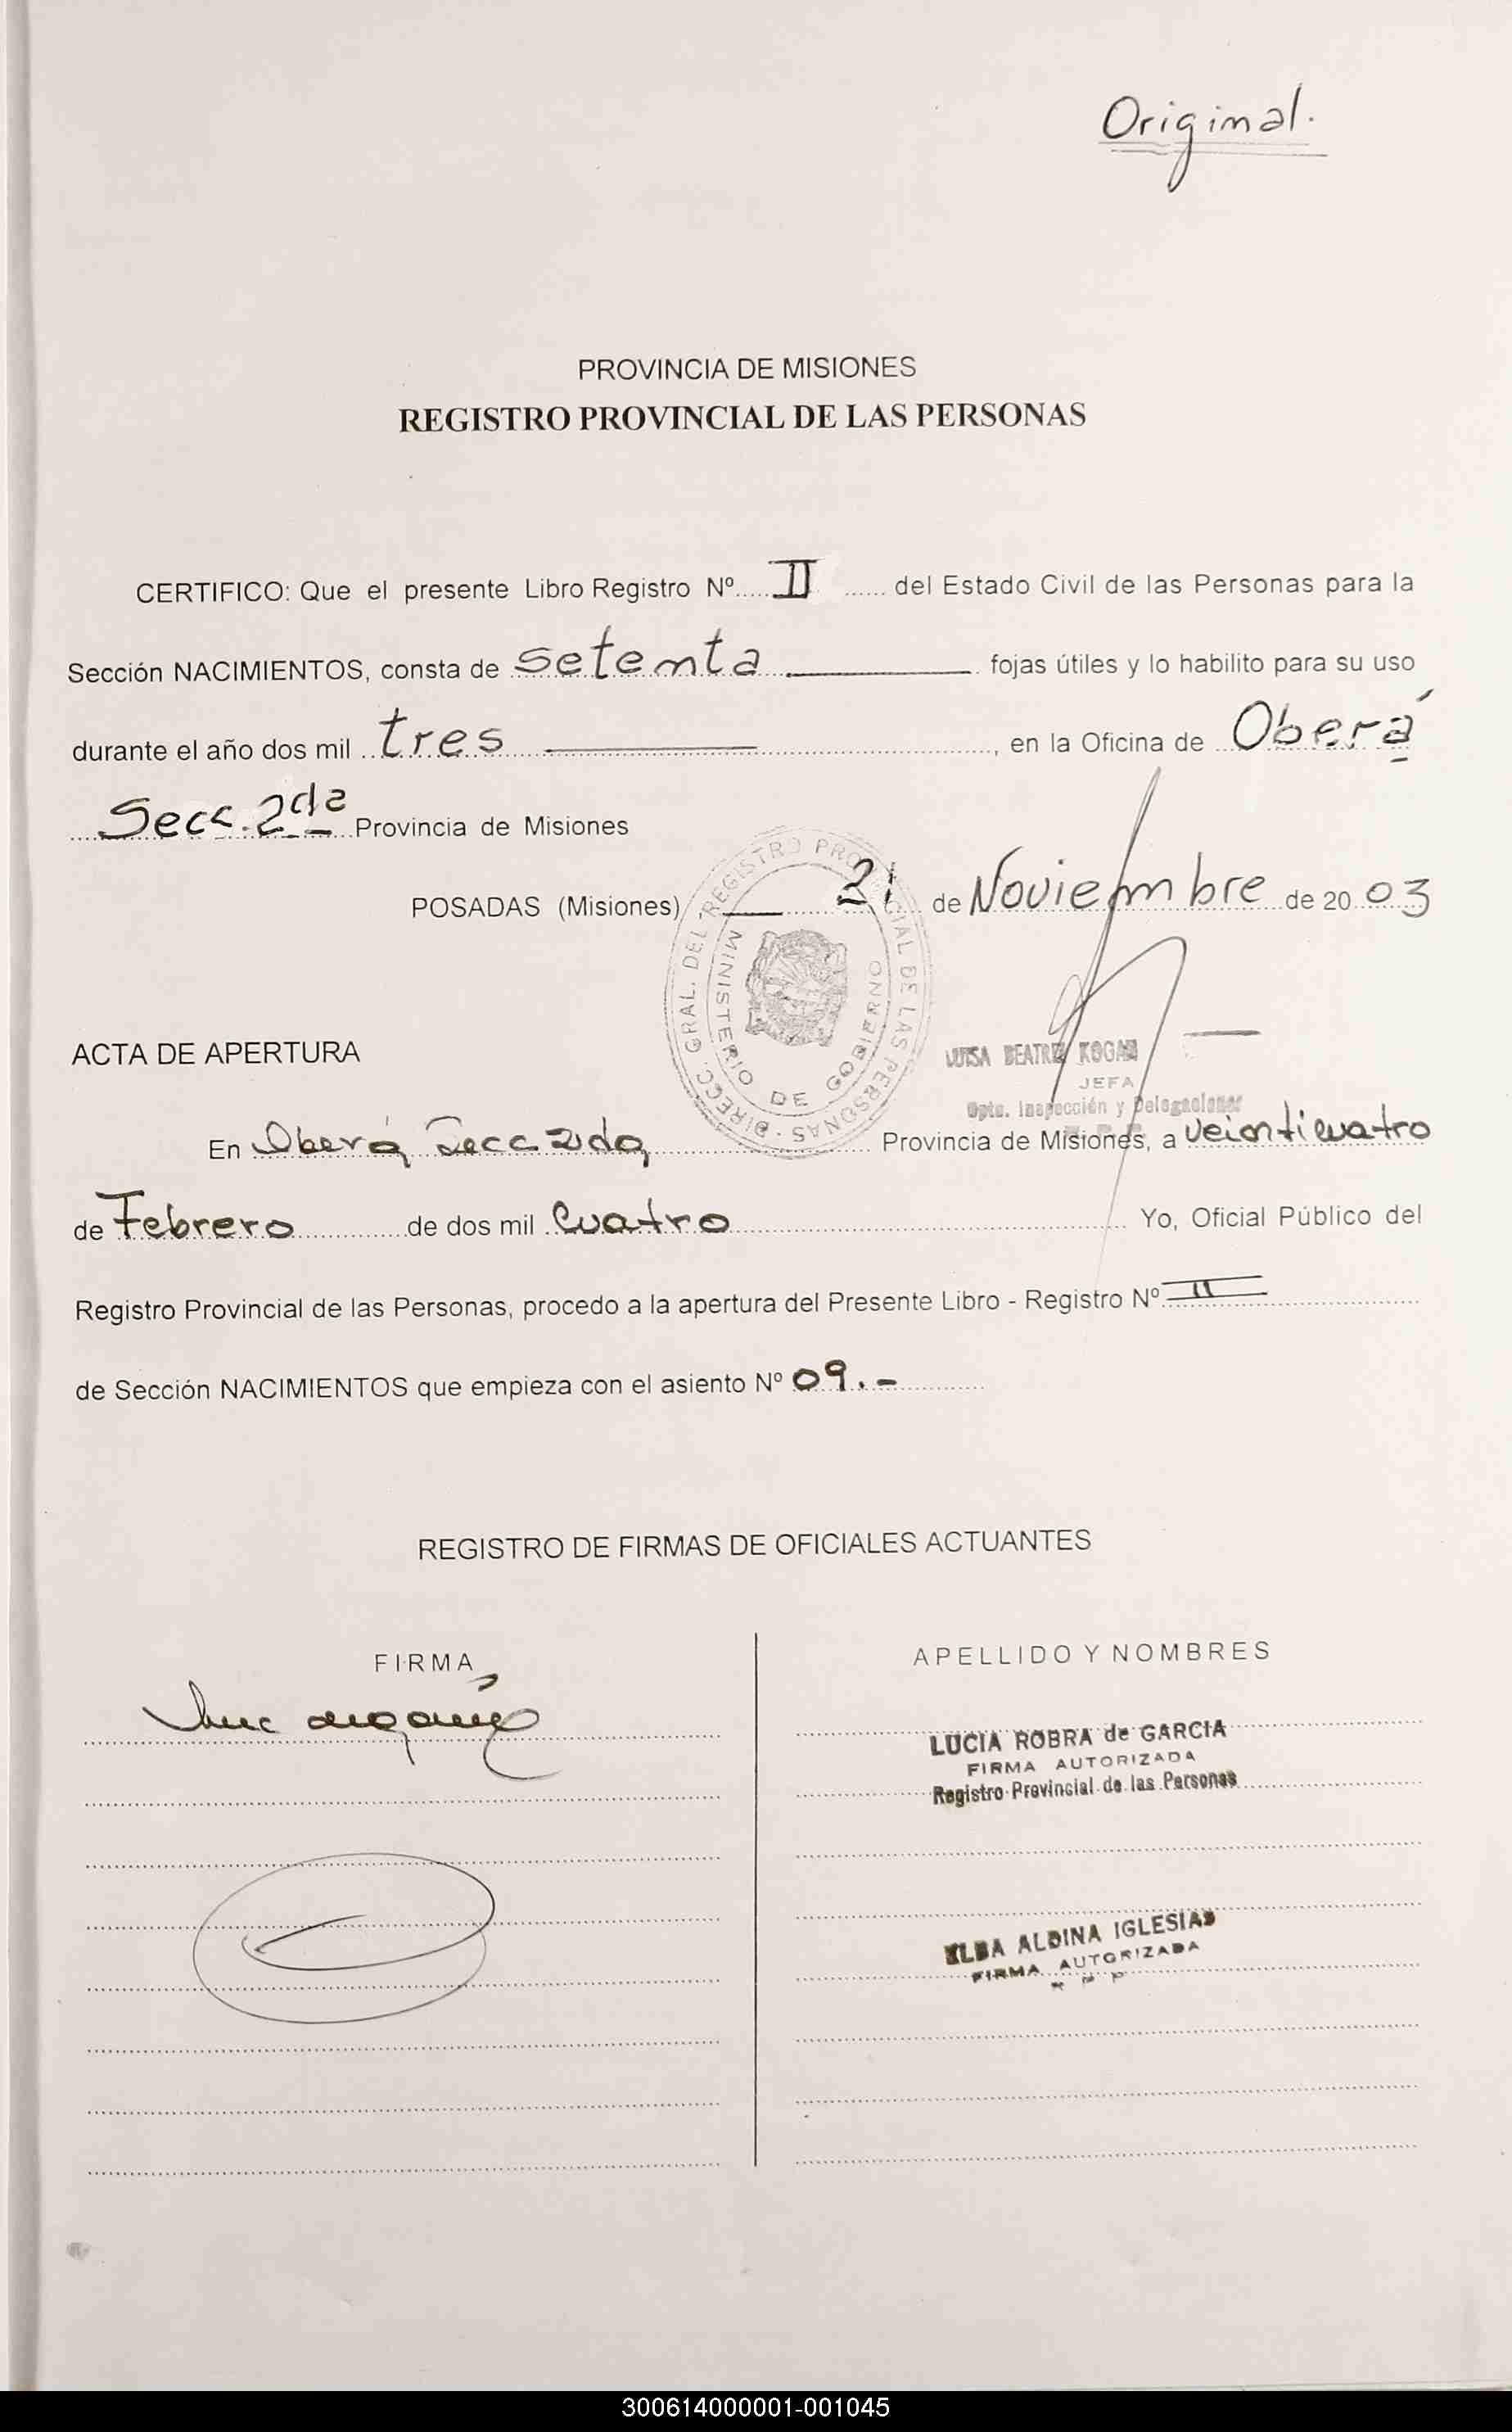 Original.
PROVINCIA DE MISIONES
REGISTRO PROVINCIAL DE LAS PERSONAS
CERTIFICO: Que el presente Libro Registro Nº.....II...... del Estado Civil de las Personas para la
Sección NACIMIENTOS, consta de setenta fojas útiles y lo habilito para su uso
durante el año dos mil tres, en la Oficina de Oberá
Secc. 2da Provincia de Misiones
POSADAS (Misiones) 21 de Noviembre de 2003
DIRECC. GRAL. DEL REGISTRO PROVINCIAL DE LAS PERSONAS
MINISTERIO DE GOBIERNO
LUISA BEATRIZ KOGAN
JEFA
Dpto. Inspección y Delegaciones
ACTA DE APERTURA
En Oberá Secc 2da Provincia de Misiones, a veinticuatro
de Febrero de dos mil Cuatro Yo, Oficial Público del
Registro Provincial de las Personas, procedo a la apertura del Presente Libro - Registro Nº II
de Sección NACIMIENTOS que empieza con el asiento Nº 09.-
REGISTRO DE FIRMAS DE OFICIALES ACTUANTES
FIRMA
APELLIDO Y NOMBRES
LUCIA ROBRA de GARCIA
FIRMA AUTORIZADA
Registro Provincial de las Personas
ELBA ALDINA IGLESIAS
FIRMA AUTORIZADA
300614000001-001045